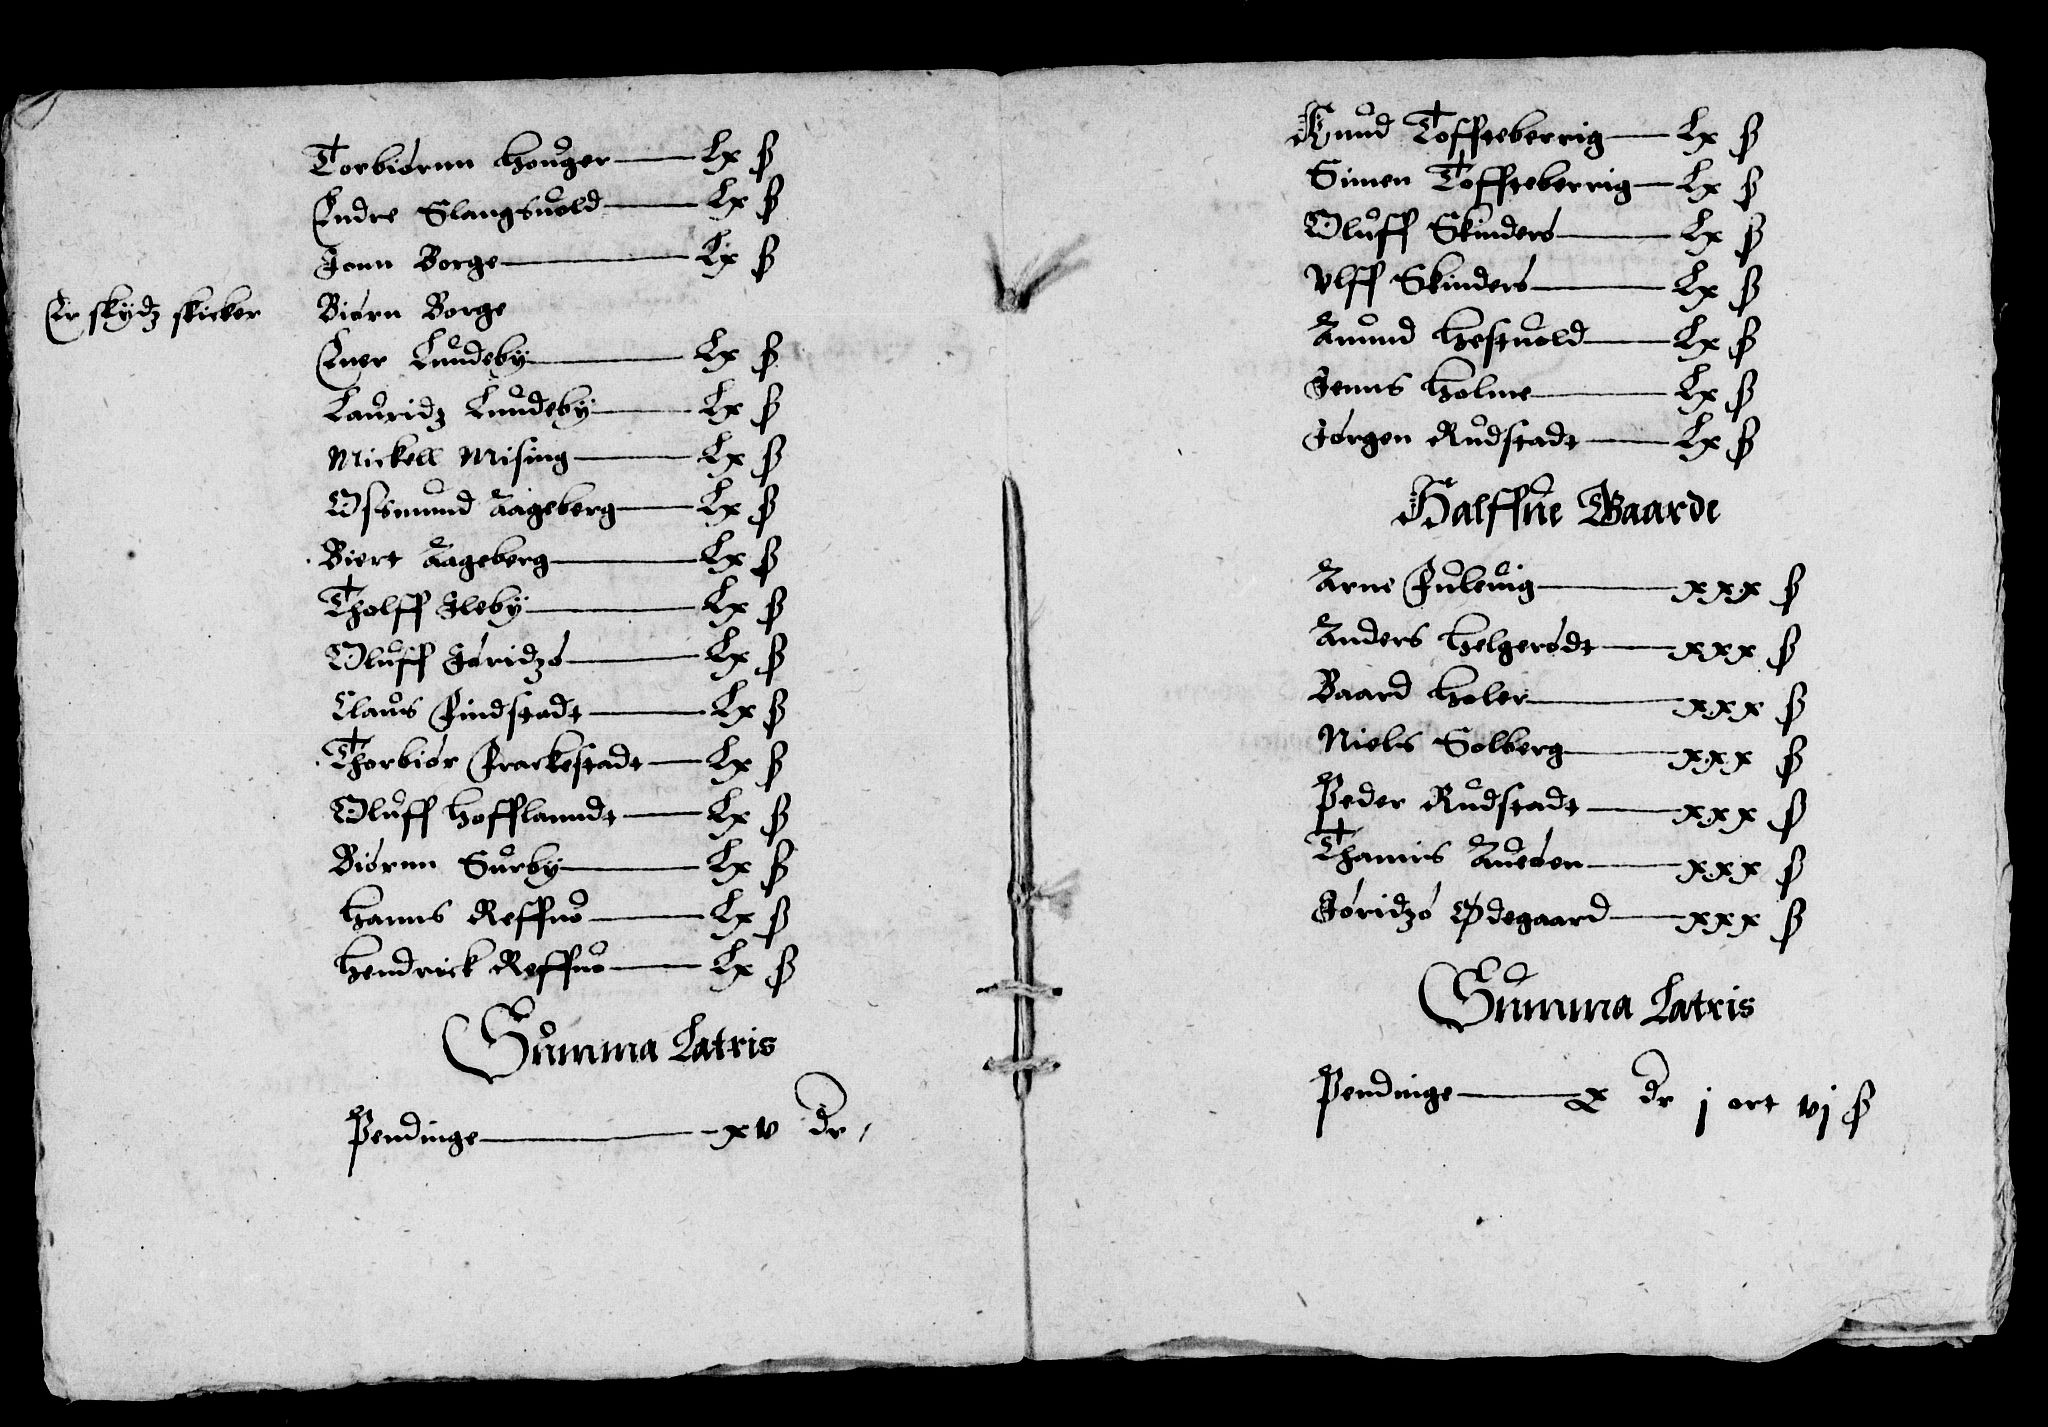 Torbiørnn Houger — Lx ß
Endre Slangsuold — Lx ß
Jonn Borge — Lx ß
Er skydz skicker Biørn Borge
Euer Lundeby — Lx ß
Lauridz Lundeby — Lx ß
Mickell Mising — Lx ß
Ossmund Aageberg — Lx ß
Biert Aageberg — Lx ß
Tholff Ileby — Lx ß
Oluff Jøridzø — Lx ß
Claus Findstadt — Lx ß
Thorbiør Frackestadt — Lx ß
Oluff Hofflanndt — Lx ß
Biørnn Surby — Lx ß
Hanns Reffnø — Lx ß
Hendrick Reffnø — Lx ß
Summa Latris
Pendinge — xv dr
Knud Toffteberrig — Lx ß
Simen Toffteberrig — Lx ß
Oluff Skinderø — Lx ß
Ulff Skinderø — Lx ß
Amund Hestuold — Lx ß
Jenns Holme — Lx ß
Jørgen Rudstadt — Lx ß
Halffue Gaarde
Arne Fuleuig — xxx ß
Anders Helgerødt — xxx ß
Baard Holer — xxx ß
Niels Solberg — xxx ß
Peder Rudstadt — xxx ß
Thamis Aueøen — xxx ß
Jøridzø Ødegaard — xxx ß
Summa Latris
Pendinge — x dr j ort vj ß